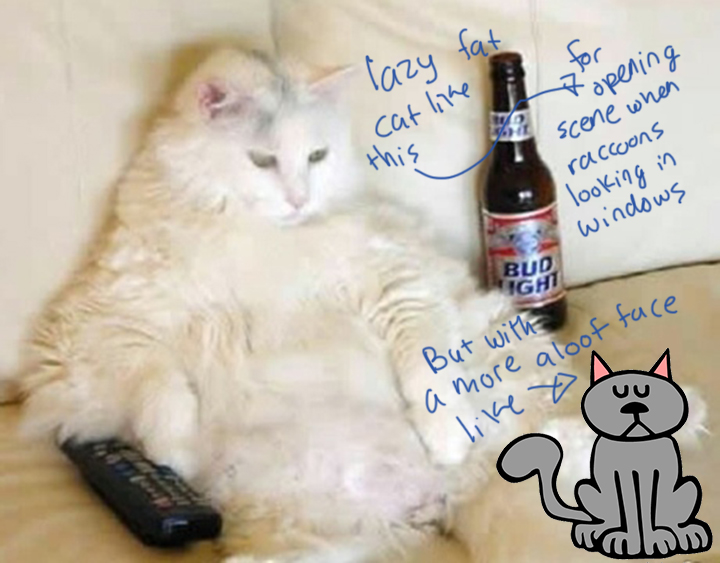 lazy fat
cat like
this
for
opening
scene when
raccoons
looking in
windows
BUD
LIGHT
BUD
LIGHT
But with
a more aloof face
like